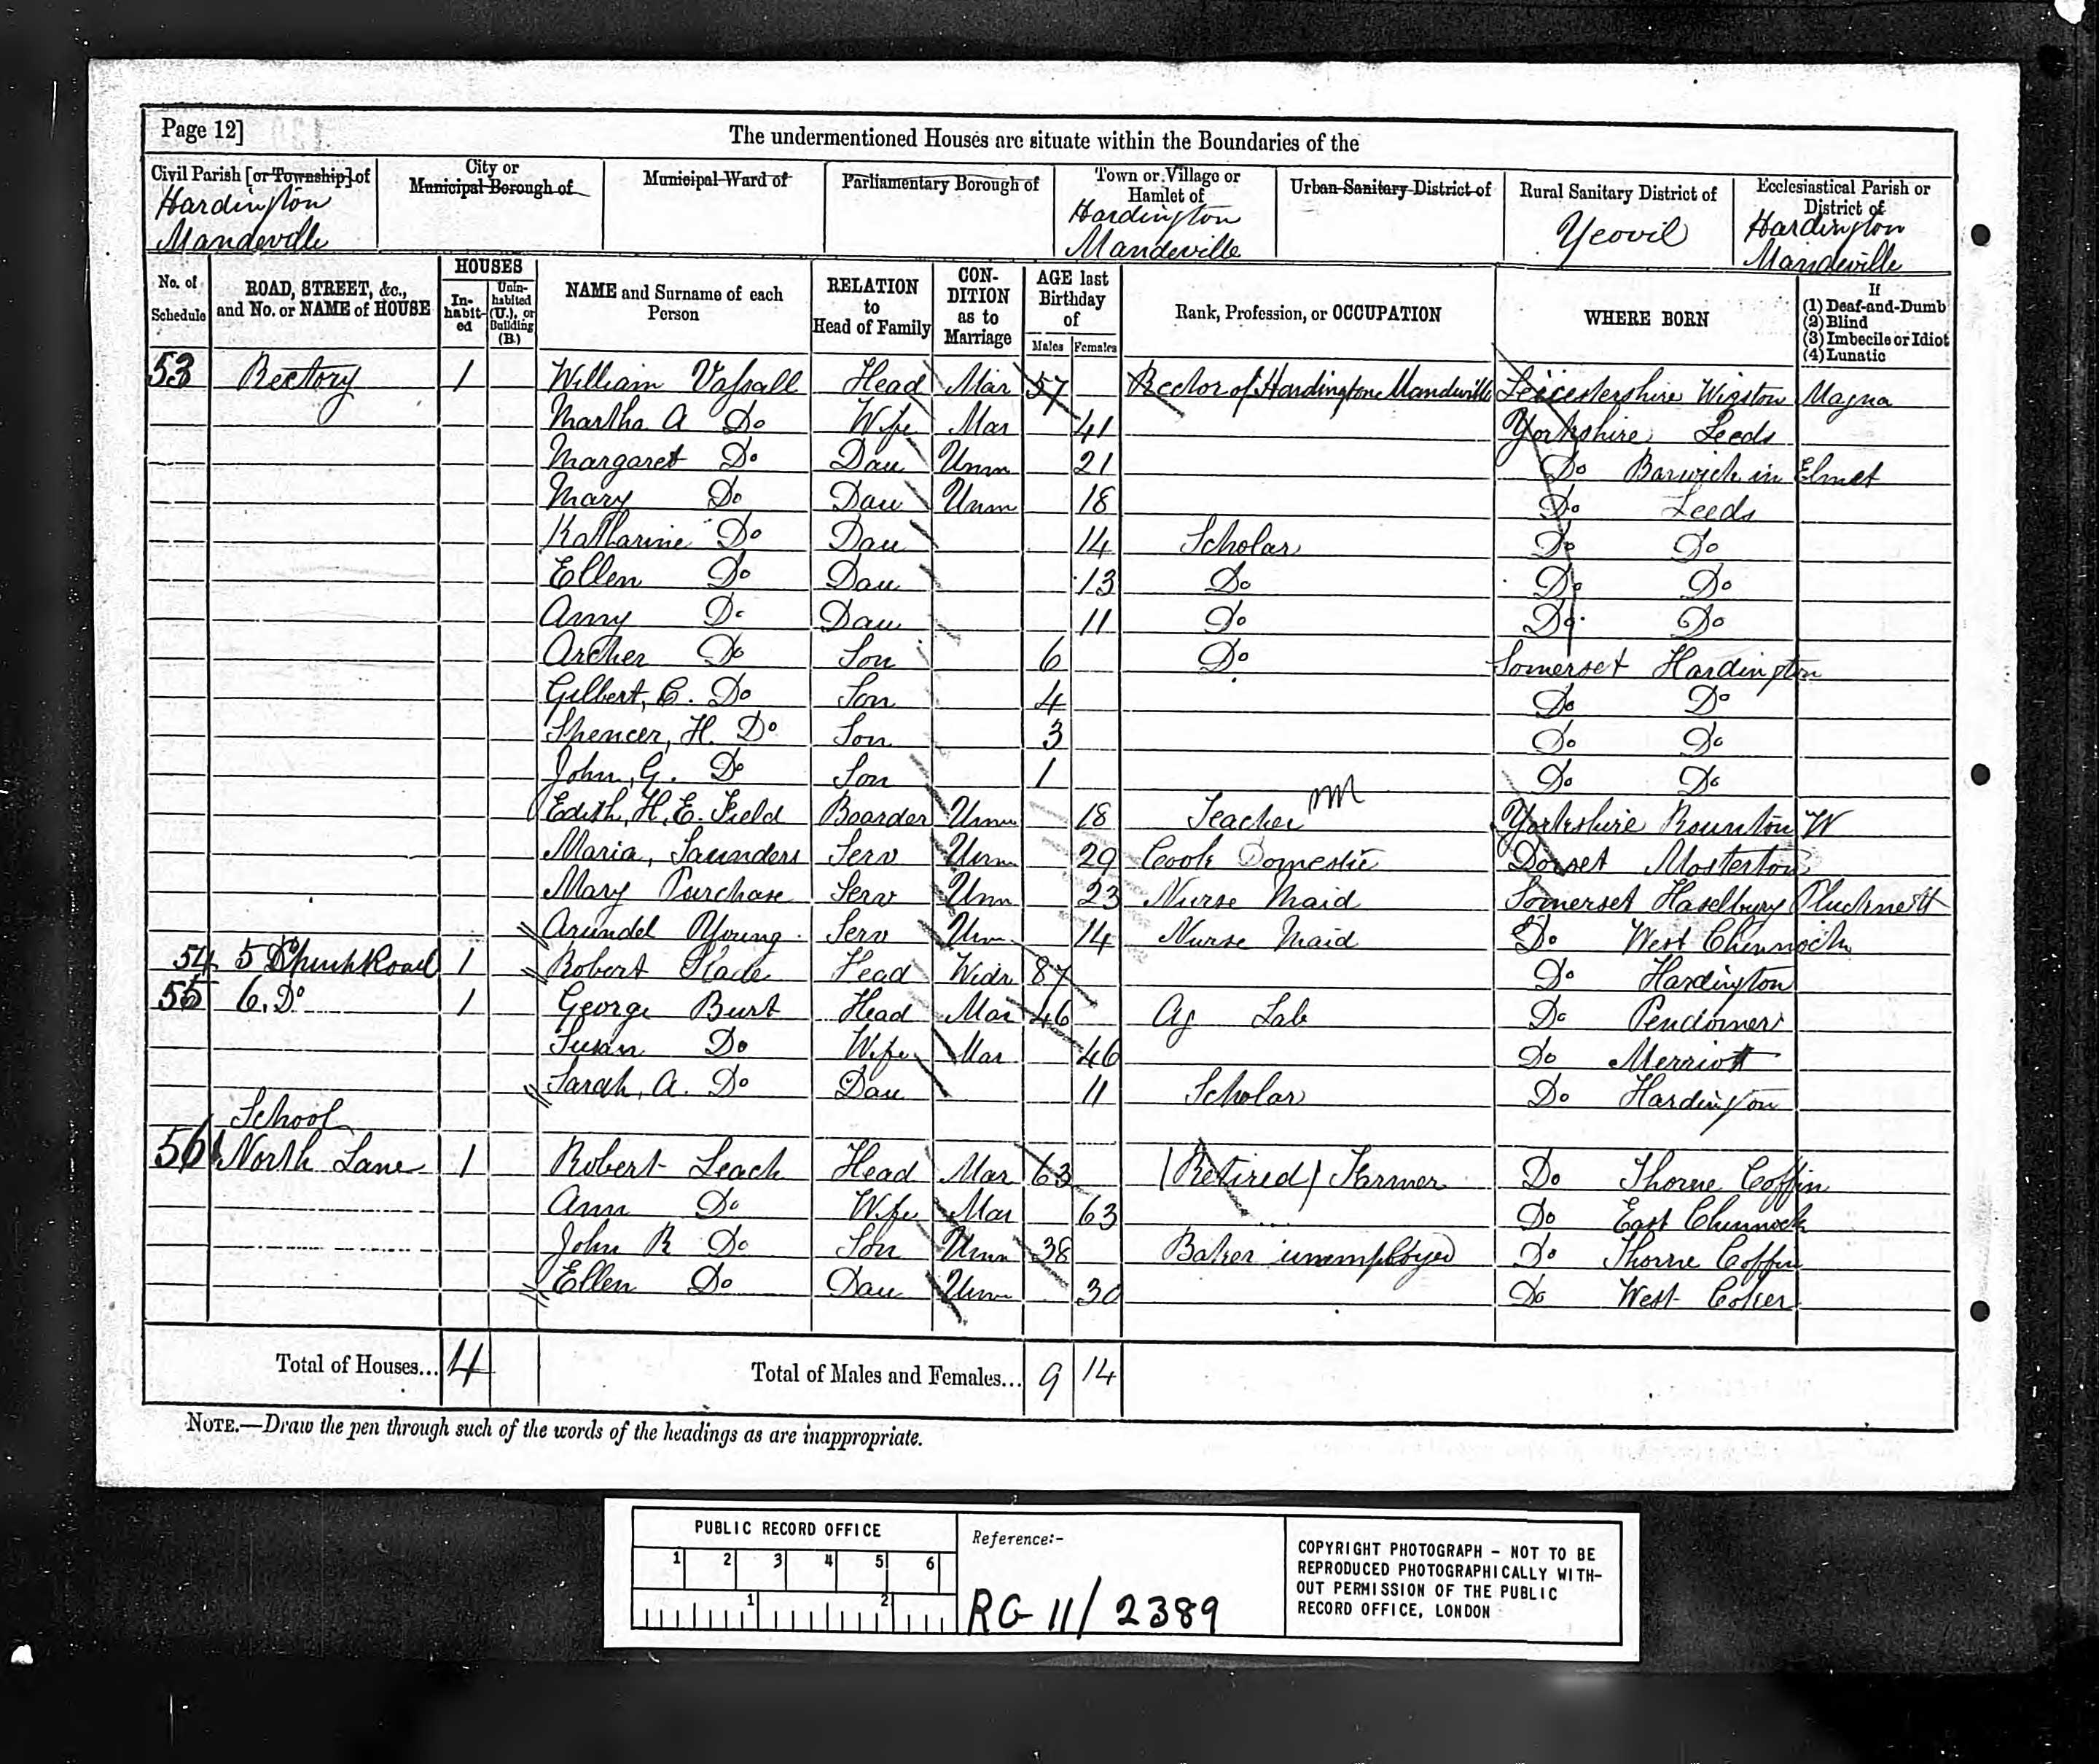 Page 12]
The undermentioned Houses are situate within the Boundaries of the
Civil Parish [or Township] of Hardington Mandeville
City or Municipal Borough of
Municipal Ward of
Parliamentary Borough of
Town or Village or Hamlet of Hardington Mandeville
Urban Sanitary District of
Rural Sanitary District of Yeovil
Ecclesiastical Parish or District of Hardington Mandeville
No. of Schedule
ROAD, STREET, &c., and No. or NAME of HOUSE
HOUSES
In-habit-ed
Unin-habited (U.), or Building (B.)
NAME and Surname of each Person
RELATION to Head of Family
CON-DITION as to Marriage
AGE last Birthday of
Males Females
Rank, Profession, or OCCUPATION
WHERE BORN
If
(1) Deaf-and-Dumb
(2) Blind
(3) Imbecile or Idiot
(4) Lunatic
53 Rectory 1 William Vassall Head Mar 57 Rector of Hardington Mandeville Leicestershire Wigston Magna
Martha A Do Wife Mar 41 Yorkshire Leeds
Margaret Do Dau Unm 21 Do Barwick in Elmet
Mary Do Dau Unm 18 Do Leeds
Katharine Do Dau 14 Scholar Do Do
Ellen Do Dau 13 Do Do Do
Amy Do Dau 11 Do Do Do
Archer Do Son 6 Do Somerset Hardington
Gilbert, C. Do Son 4 Do Do
Spencer, H. Do Son 3 Do Do
John, G. Do Son 1 Do Do
Edith, H. E. Field Boarder Unm 18 Teacher Yorkshire Rounton W
Maria, Saunders Serv Unm 29 Cook Domestic Dorset Mosterton
Mary Purchase Serv Unm 23 Nurse Maid Somerset Haselbury Plucknett
Arundel Young Serv Unm 14 Nurse Maid Do West Chinnock
54 5 Road 1 Robert Slade Head Widr 87 Do Hardington
55 6. Do 1 George Burt Head Mar 46 Ag Lab Do Pendomer
Susan Do Wife Mar 46 Do Merriott
Sarah, A. Do Dau 11 Scholar Do Hardington
School
56 North Lane 1 Robert Leach Head Mar 63 (Retired) Farmer Do Thorne Coffin
Ann Do Wife Mar 63 Do East Chinnock
John R Do Son Unm 38 Baker unemployed Do Thorne Coffin
Ellen Do Dau Unm 30 Do West Coker
Total of Houses... 4 Total of Males and Females... 9 14
NOTE.—Draw the pen through such of the words of the headings as are inappropriate.
PUBLIC RECORD OFFICE
1 2 3 4 5 6
1 2
Reference:-
RG 11/2389
COPYRIGHT PHOTOGRAPH - NOT TO BE
REPRODUCED PHOTOGRAPHICALLY WITH-
OUT PERMISSION OF THE PUBLIC
RECORD OFFICE, LONDON